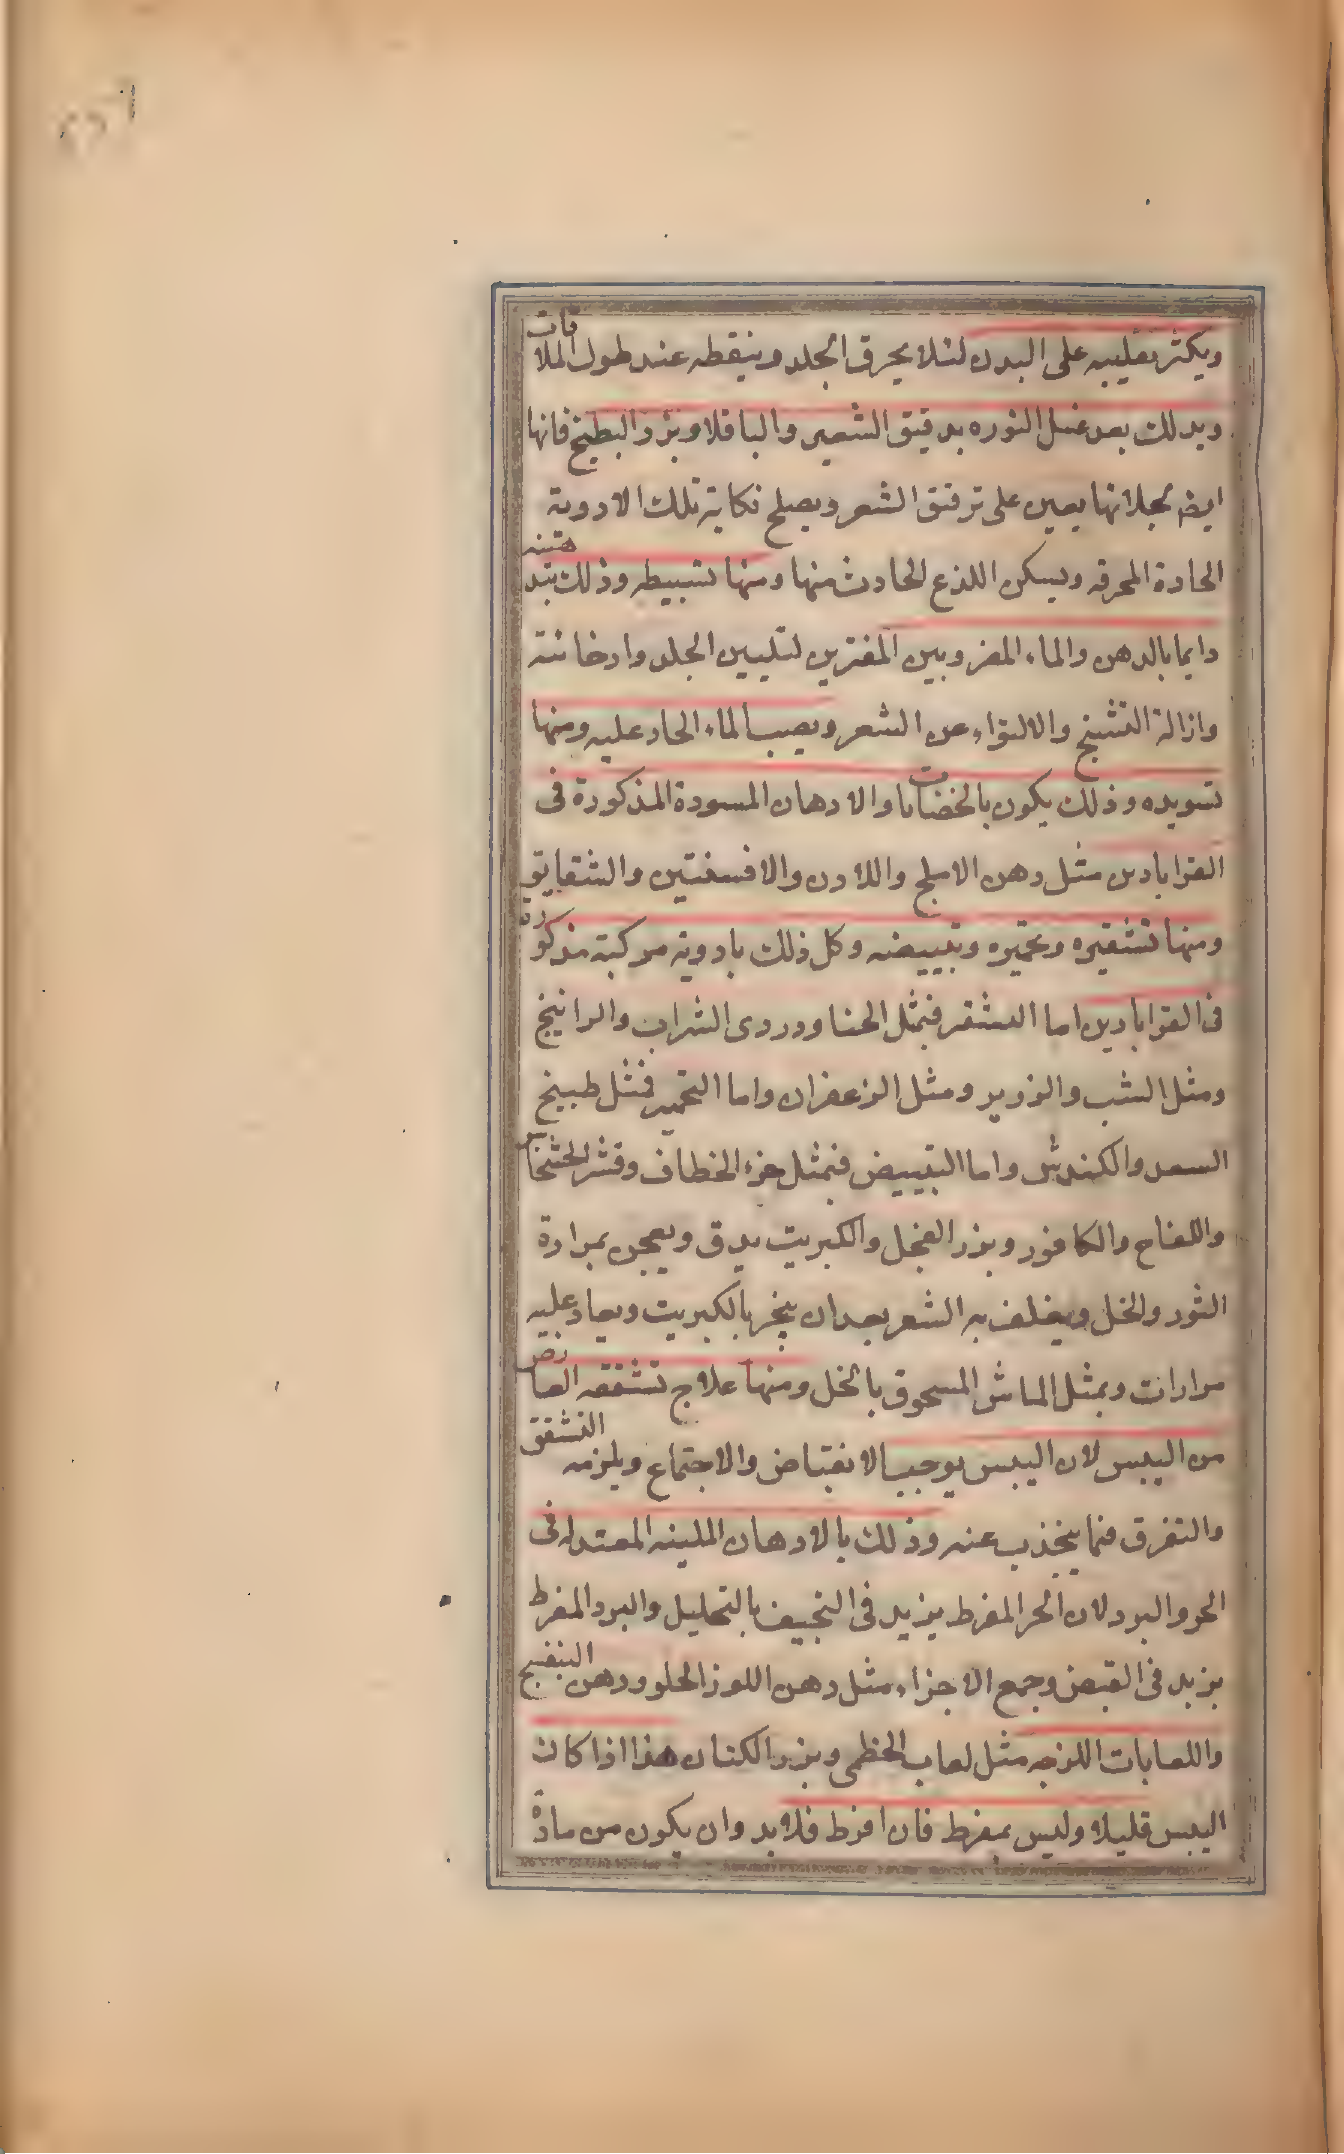 ويكثر تقليبه على البدن لئلا يحرق الجلد وينقطه عند طول الملاقات
ويدلك بعد غسل النوره بدقيق الشعير والباقلا وبزر البطيخ فانها
ايضا بجلائها يعين على ترقيق الشعر ويصلح نكاية تلك الادوية
الحادة المحرقه ويسكن اللذع الحادث منها ومنها تسبيطه وذلك بتدهينه
دايما بالدهن والماء المضروبين المفترين لتليين الجلد وارخائته
وازالة التشنج والالتواء عن الشعر ويصب الماء الحار عليه ومنها
تسويده وذلك يكون بالخضابات والادهان المسودة المذكورة فى
القرابادين مثل دهن الاملج واللادن والافسنتين والشقايق
ومنها تشقيره وتحميره وتبييضه وكل ذلك بادوية مركبة مذكورة
فى القرابادين اما التشقير فبمثل الحنا ودردى الشراب والراتينج
ومثل الشب والزرير ومثل الزعفران واما التحمير فمثل طبيخ
السعد والكندش واما التبييض فبمثل خرء الخطاف وقشر الخشخاش
واللفاح والكافور وبزر الفجل والكبريت يدق ويعجن بمرارة
الثور والخل ويغلف به الشعر بعد ان يبخر بالكبريت ويعاد عليه
مرارات وبمثل الماش المسحوق بالخل ومنها علاج تشققه العارض
من اليبس لان اليبس يوجب الانقباض والاجتماع ويلزمه التشقق
والتفرق فيما ينجذب عنه وذلك بالادهان الملينه المعتدله فى
الحر والبرد لان الحر المفرط يزيد فى التجفيف بالتحليل والبرد المفرط
يزيد فى القبض وجمع الاجزاء مثل دهن اللوز الحلو ودهن البنفسج
واللعابات اللزجه مثل لعاب الخطمى وبزر الكتان هذا اذا كان
اليبس قليلا وليس بمفرط فان افرط فلا بد وان يكون من مادة